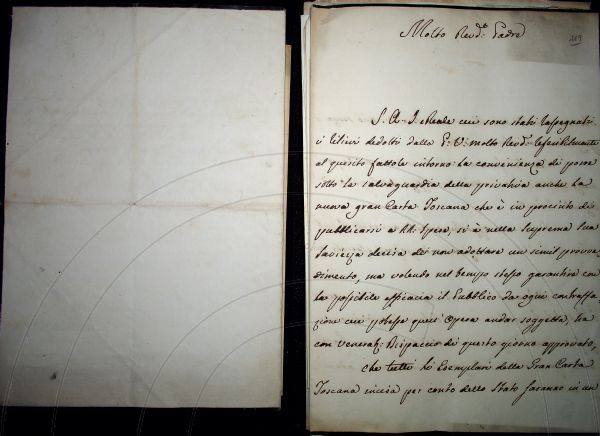 Molto Revd.º Padre
119
S. A. I. e Reale cui sono stati rassegnati
i rilievi dedotti dalla P: V: Molto Revd:
al quesito fattole intorno la convenienza di porre
sotto la salvaguardia della privativa anche la
nuova gran Carta Toscana che è in procinto di
pubblicarsi a RR: spese, si è nella suprema sua
saviezza decisa di non adottare un simil provve-
dimento, ma volendo nel tempo stesso garantire con
la possibile efficacia il Pubblico da ogni contraffa-
zione cui potesse quest'Opera andar soggetta, ha
con venerat: Dispaccio di questo giorno approvato,
che tutti gli Esemplari della Gran Carta
Toscana incisa per conto dello Stato saranno in un